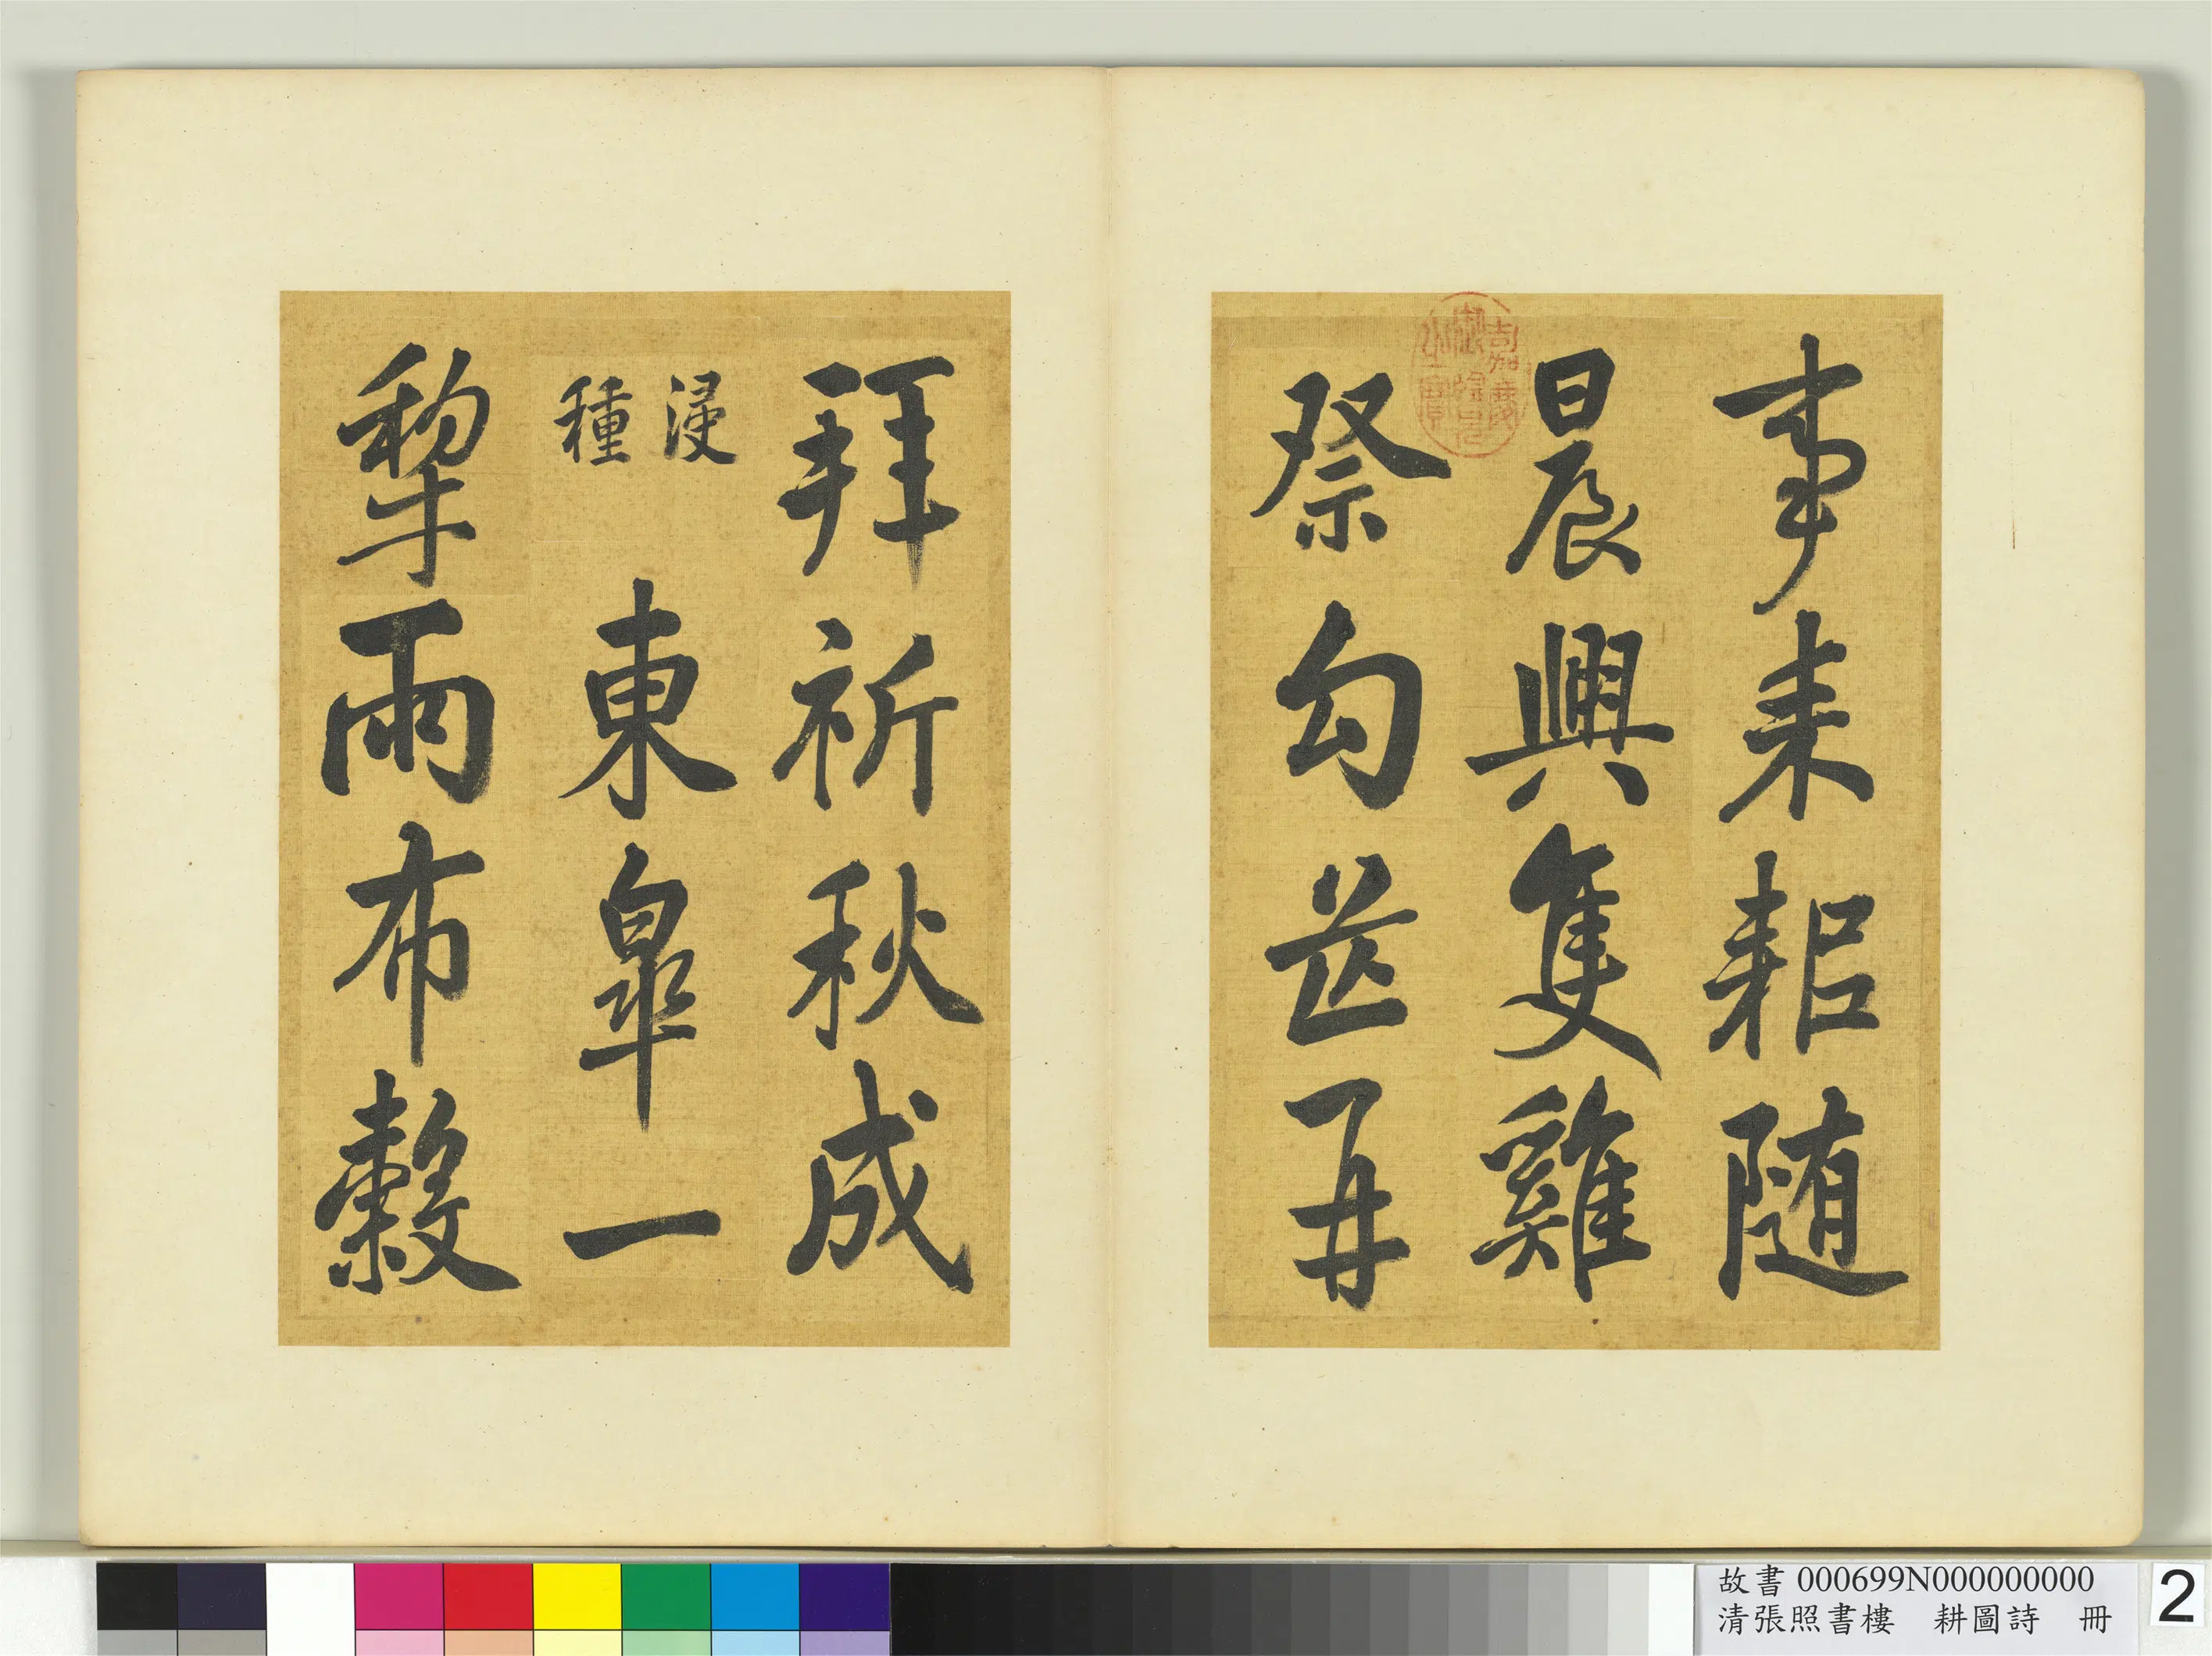 事耒耜随
晨興隻雞
祭勾芒再
拜祈秋成
浸種 東皐一
犂雨布穀
嘉慶御覽之寶
故書 000699N000000000
清張照書樓 耕圖詩 冊
2